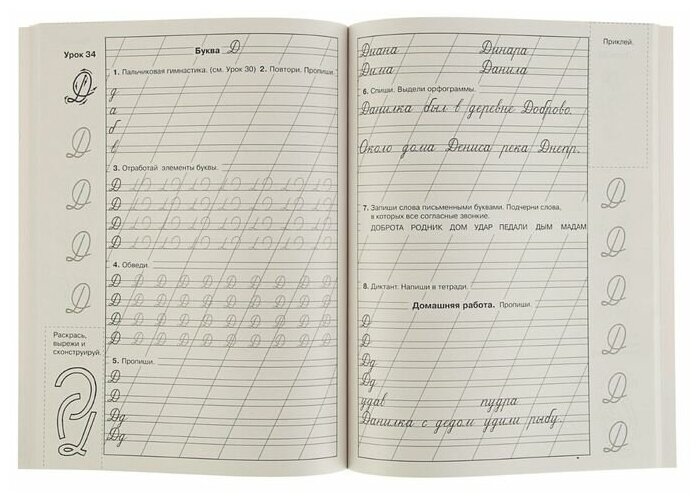 Урок 34
Буква Д
1. Пальчиковая гимнастика. (см. Урок 30) 2. Повтори. Пропиши.
д
а
б
в
3. Отработай элементы буквы.
Д
Д
Д
Д
4. Обведи.
Д Д Д Д Д Д Д Д Д Д
Д Д Д Д Д Д Д Д Д Д
Д Д Д Д Д Д Д Д Д Д
Д Д Д Д Д Д Д Д Д Д
Раскрась,
вырежи и
сконструируй.
5. Пропиши.
Д
Д
Дд
Дд
Диана Динара
Дима Данила
Приклей.
6. Спиши. Выдели орфограммы.
Данилка был в деревне Доброво.
Около дома Дениса река Днепр.
7. Запиши слова письменными буквами. Подчерни слова,
в которых все согласные звонкие.
ДОБРОТА РОДНИК ДОМ УДАР ПЕДАЛИ ДЫМ МАДАМ
8. Диктант. Напиши в тетради.
Домашняя работа. Пропиши.
Д
Д
Дд
Дд
удав пудра
Данилка с дедом удили рыбу.